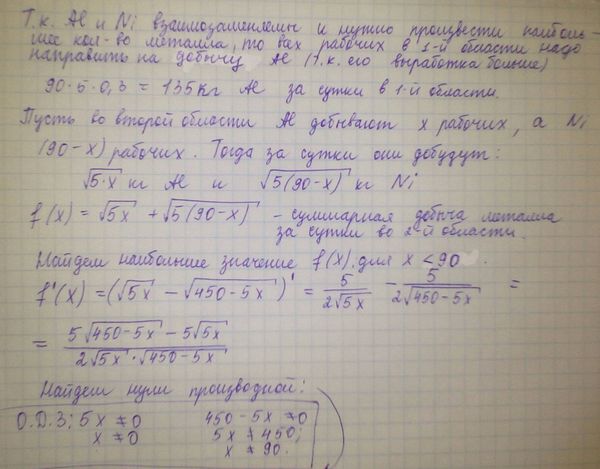 Т.к. Al и Ni взаимозаменяемы и нужно произвести наиболь-
шее кол-во металла, то всх рабочих в 1-й области надо
направить на добычу Al (т.к. его выработка больше)
90·5·0,3 = 135кг Al за сутки в 1-й области.
Пусть во второй области Al добывают x рабочих, а Ni
(90-x) рабочих. Тогда за сутки они добудут:
√5·x кг Al и √5(90-x) кг Ni
f(x) = √5x + √5(90-x) - суммарная добыча металла
за сутки во 2-й области.
Найдем наибольшее значение f(x) для x < 90.
f'(x) = (√5x - √450-5x)' = 5/2√5x - 5/2√450-5x =
= 5√450-5x - 5√5x / 2√5x · √450-5x
Найдем нули производной:
О.Д.З: 5x ≠ 0 450-5x ≠ 0
x ≠ 0 5x ≠ 450;
x ≠ 90.